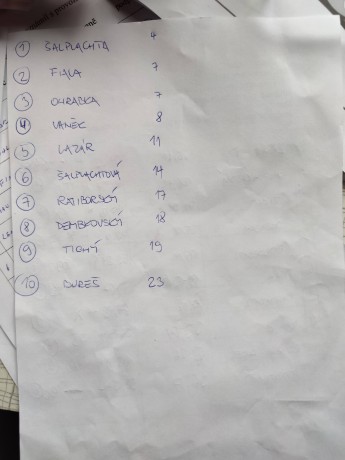 1 ŠALPLACHTA 4
2 FIALA 7
3 OHRADKA 7
4 VANĚK 8
5 LAZÁR 11
6 ŠALPLACHTOVÁ 14
7 RATIBORSKÝ 17
8 DEMBKOVSKÝ 18
9 TICHÝ 19
10 DUREŠ 23